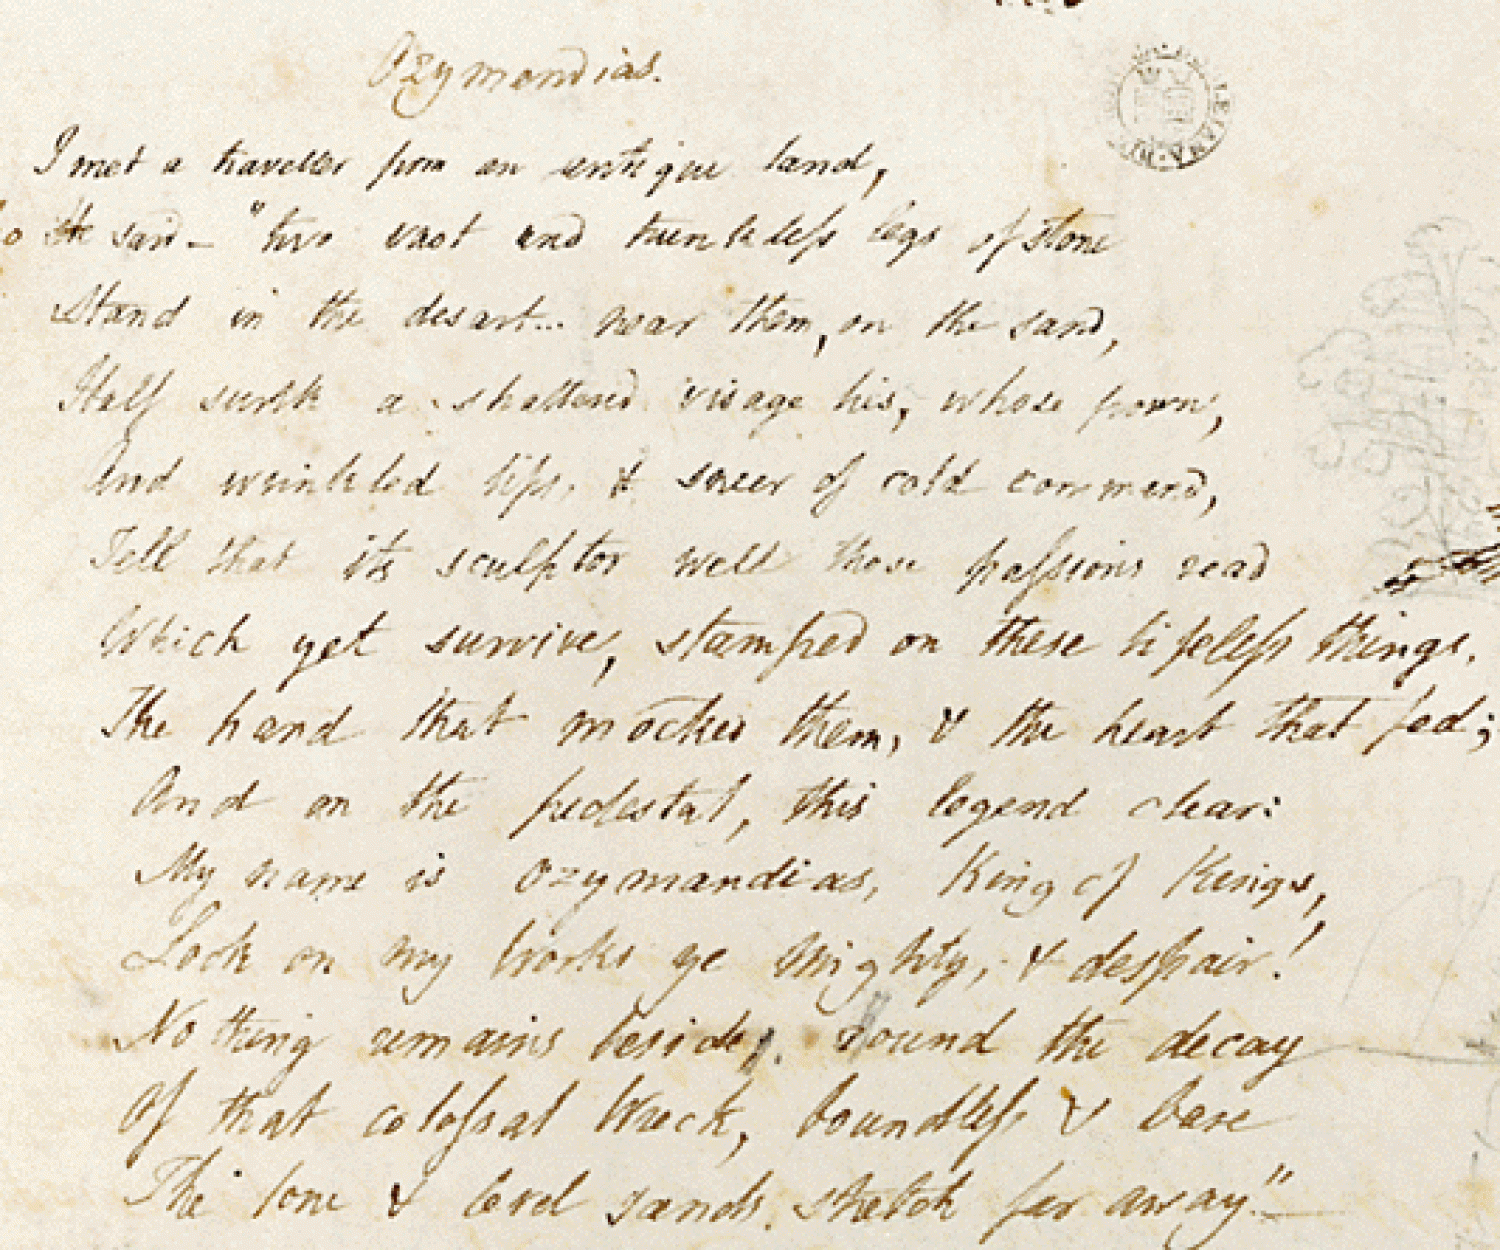 Ozymandias.
I met a traveller from an antique land,
He said — "two vast and trunkless legs of stone
Stand in the desart... near them, on the sand,
Half sunk a shattered visage lies, whose frown,
And wrinkled lips, & sneer of cold command,
Tell that its sculptor well those passions read
Which yet survive, stamped on these lifeless things,
The hand that mocked them, & the heart that fed;
And on the pedestal, this legend clear:
My name is Ozymandias, King of Kings,
Look on my Works ye Mighty, & despair!
No thing remains beside. Round the decay
Of that colossal Wreck, boundless & bare
The lone & level sands stretch far away."—